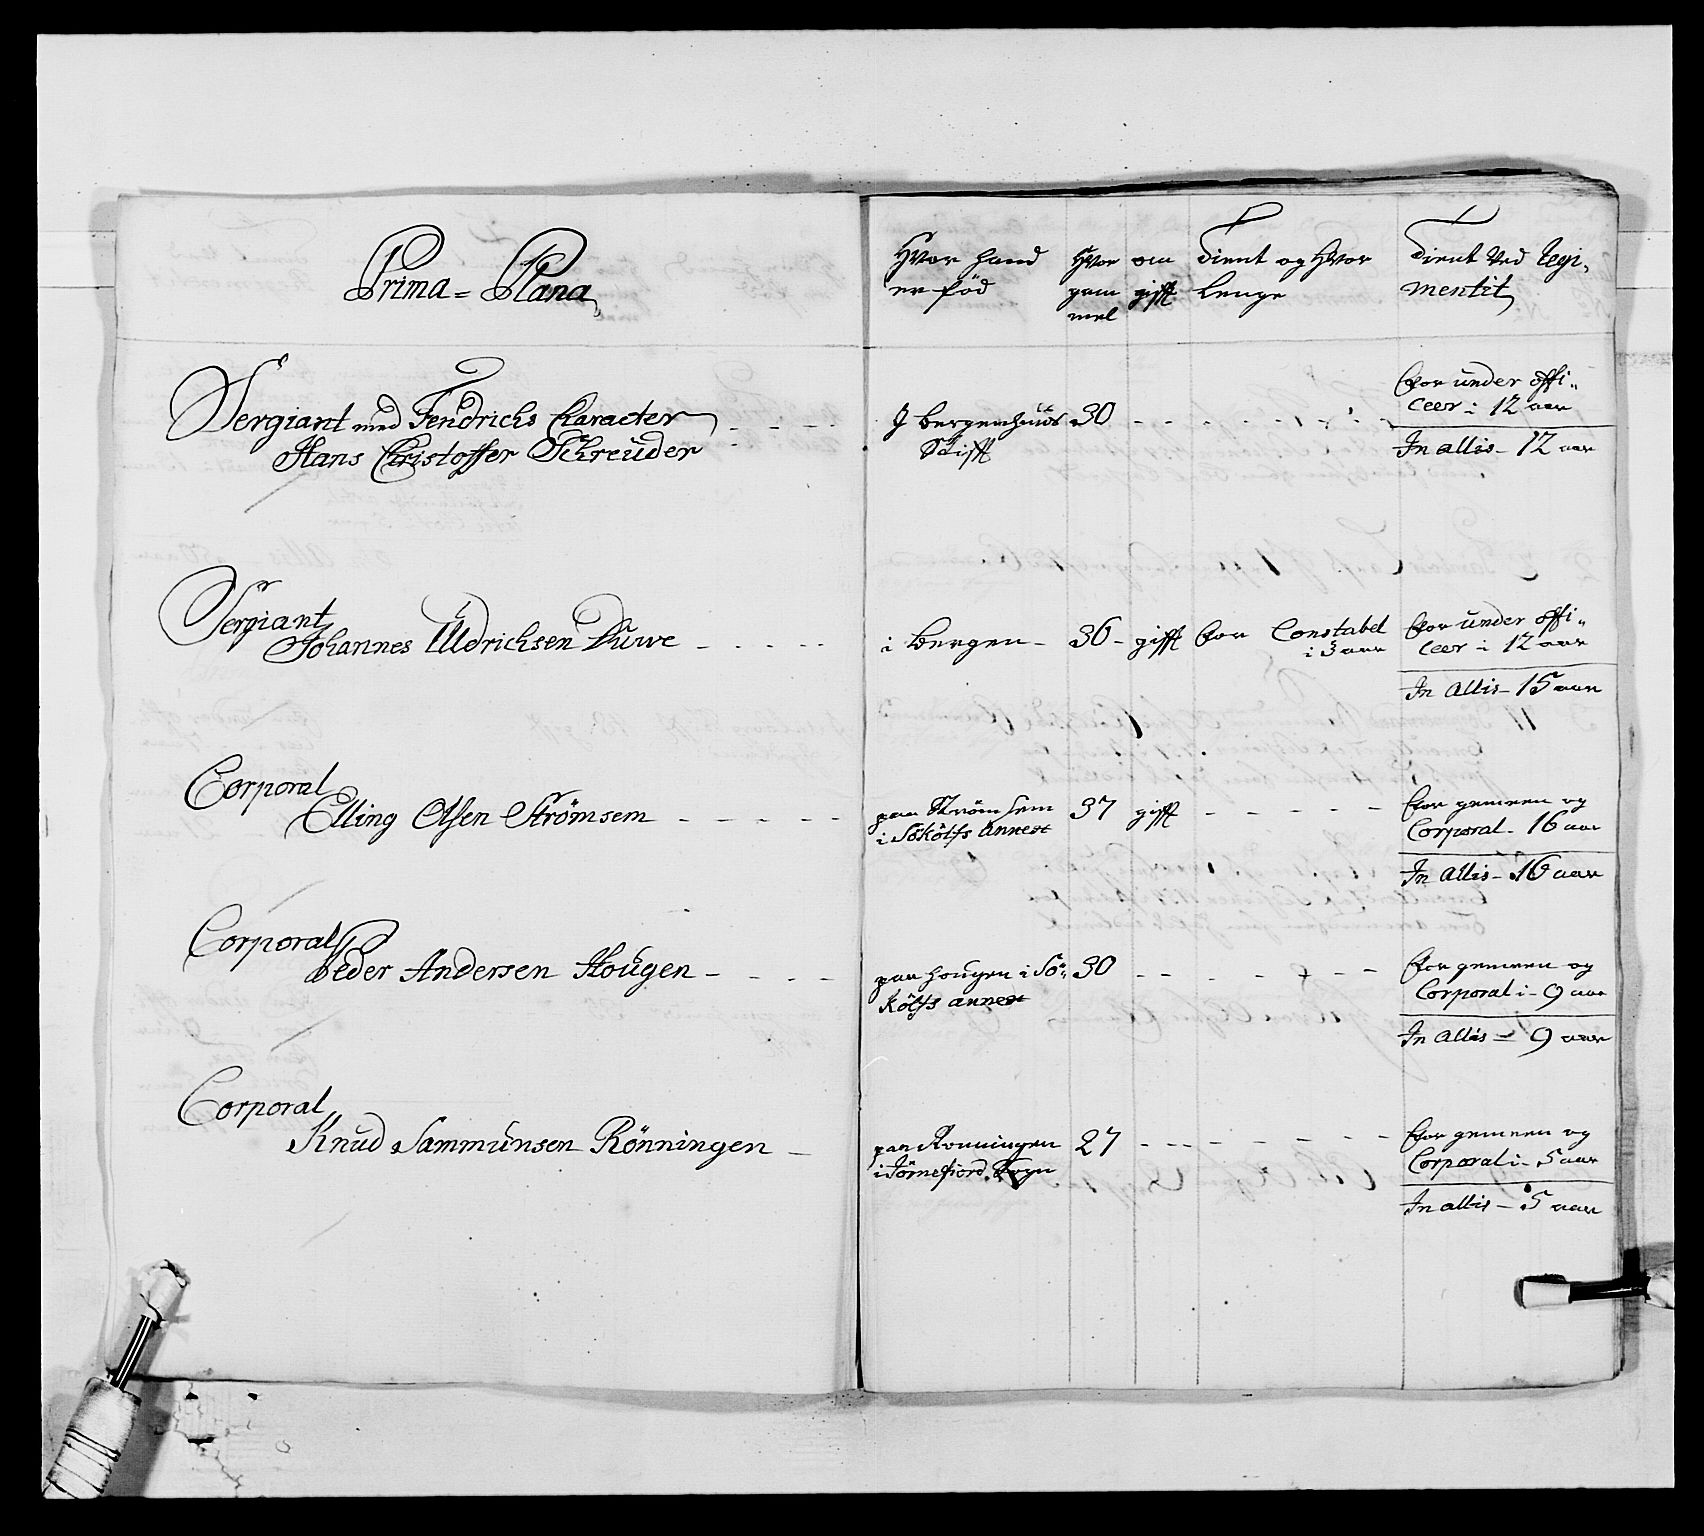 Prima = Plana
Hvor hand er föd
Hvor gam mel
om gifft
Tient og Hvor lenge
Tient Ved Regi, mentit
Sergiant med Fendrichs Character
Hans Christoffer Schreuder
J bergenhuus
Stifft
30
for under offi,,
ceer i 12 aar
In allis - 12 aar
Sergiant
Johannes Uldrichsen Duwe
i bergen - 36 - gifft for Constabel
i 3 aar
for under offi,,
ceer i 12 aar
In allis - 15 aar
Corporal
Elling Olsen Strömsem
paa Strömsem
i
37 gifft
for gemeen og
Corporal - 16 aar
In allis - 16 aar
Corporal
Peder Andersen Hougen
paa hougen i
30
for gemeen og
Corporal i - 9 aar
In allis = 9 aar
Corporal
Knud Sammunsen Rönningen
paa Ronningen
27
for gemeen og
Corporal i - 5 aar
In allis - 5 aar